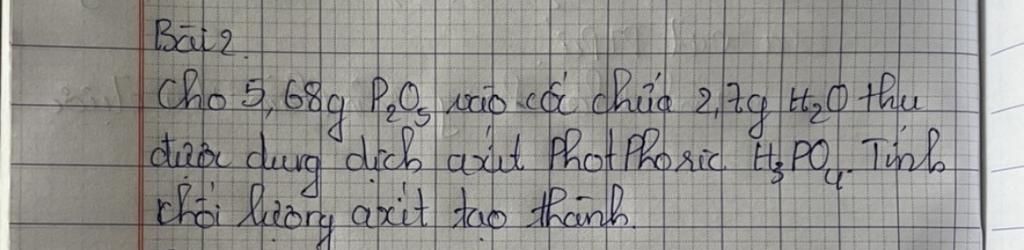 Bài 2.
Cho 5,68g P₂O₅ vào cốc chứa 2,7g H₂O thu
được dung dịch axit Photphoric H₃PO₄. Tính
khối lượng axit tạo thành.